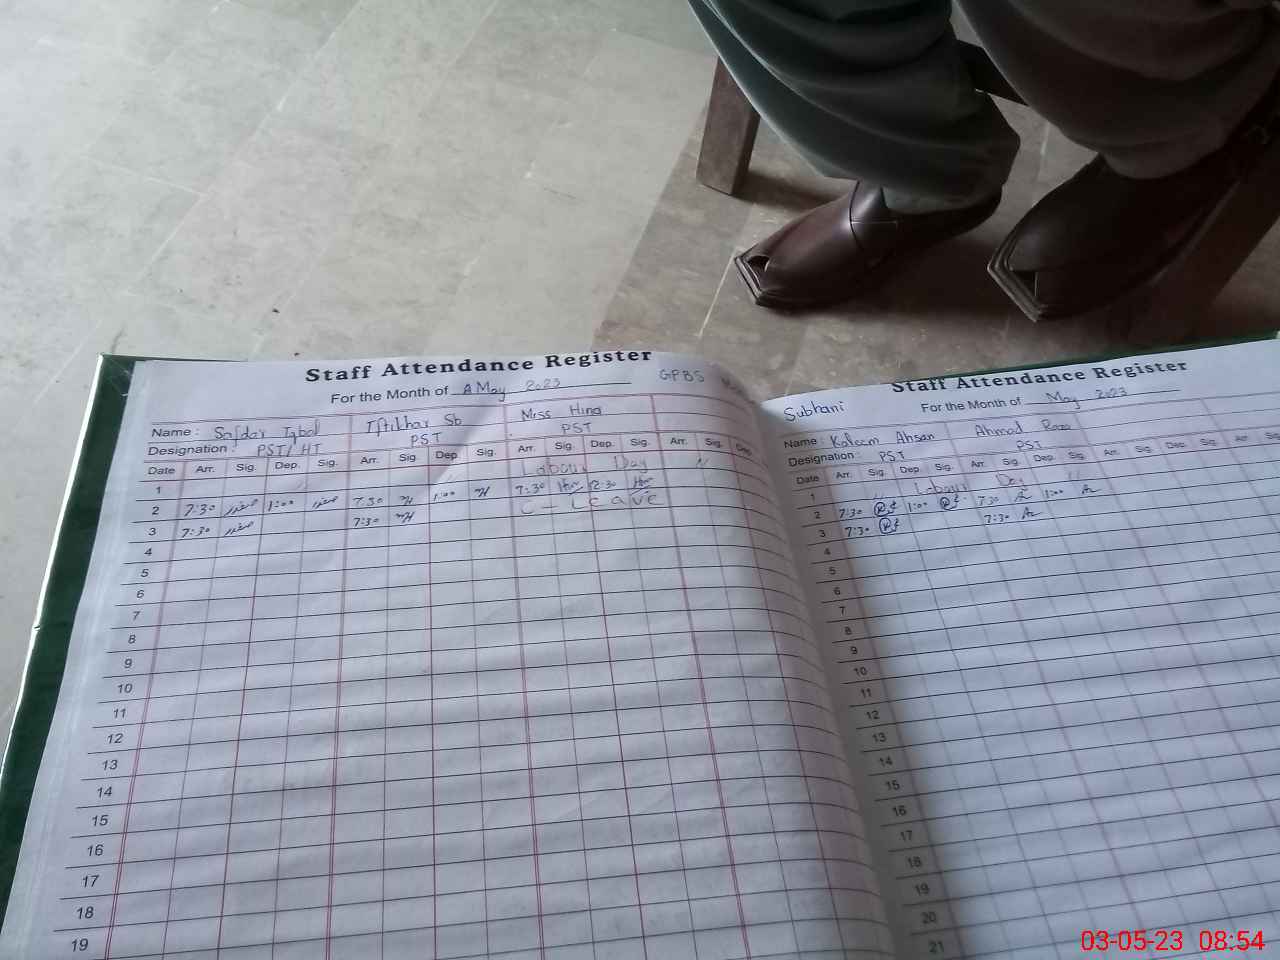 Staff Attendance Register
For the Month of A May 2023
GPBS
Name : Safdar Iqbal Iftikhar Sb Miss Hina
Designation : PST/HT PST PST
Date Arr. Sig. Dep. Sig. Arr. Sig. Dep. Sig. Arr. Sig. Dep. Sig. Arr. Sig. Dep.
1 Labour Day
2 7:30 1:00 7:30 1:00 7:30 12:30
3 7:30 7:30 C - Leave
4
5
6
7
8
9
10
11
12
13
14
15
16
17
18
19
Subhani
Staff Attendance Register
For the Month of May 2023
Name : Kaleem Ahsan Ahmad Raza
Designation : PST PST
Date Arr. Sig. Dep. Sig. Arr. Sig. Dep. Sig. Arr. Sig. Dep. Sig. Arr. Sig.
1 Labour Day
2 7:30 1:00 7:30 1:00
3 7:30 7:30
4
5
6
7
8
9
10
11
12
13
14
15
16
17
18
19
20
21
03-05-23 08:54